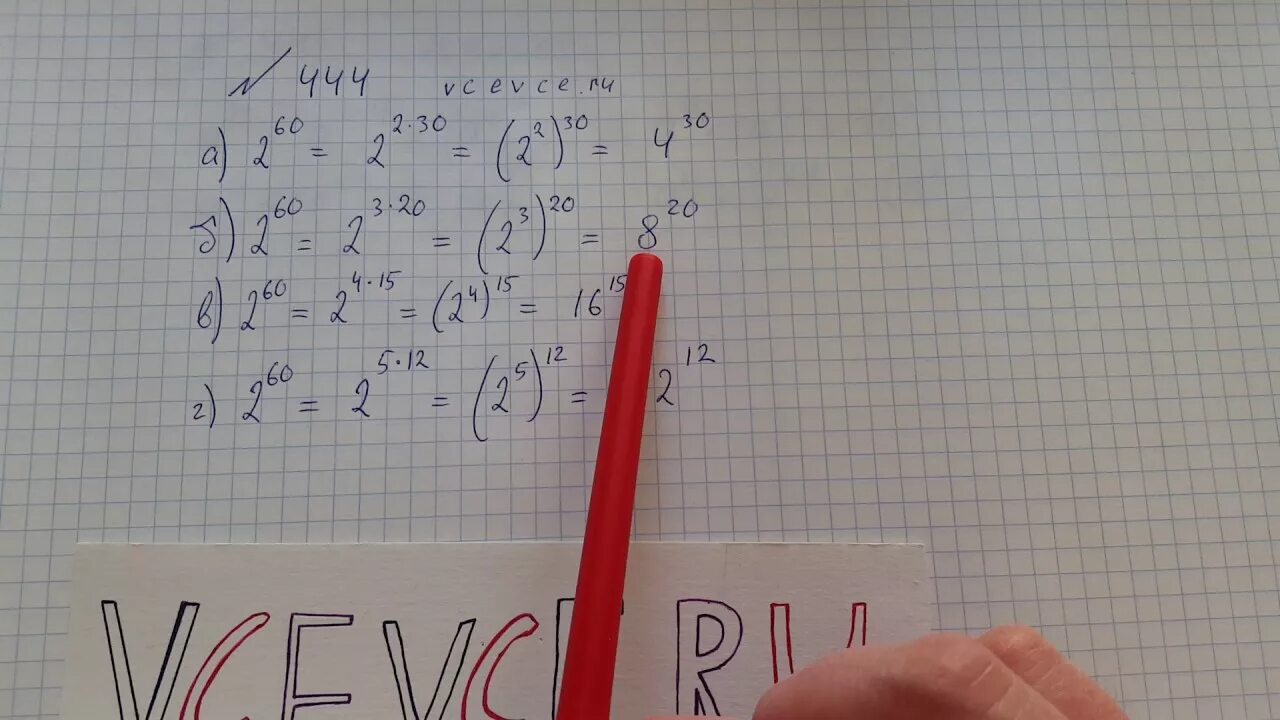 № 444 vcevce.ru
а) 2^60 = 2^2·30 = (2^2)^30 = 4^30
б) 2^60 = 2^3·20 = (2^3)^20 = 8^20
в) 2^60 = 2^4·15 = (2^4)^15 = 16^15
г) 2^60 = 2^5·12 = (2^5)^12 = 2^12
VCEVCE.RU